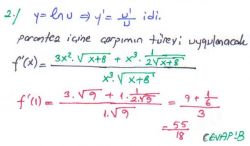 2./ y = ln u ⇒ y' = u'/u idi.
parantez içine çarpımın türevi uygulanacak
f'(x) = (3x². √(x+8) + x³. 1/(2√(x+8))) / (x³. √(x+8))
f'(1) = (3. √9 + 1. 1/(2.√9)) / (1.√9) = (9 + 1/6) / 3
= 55/18 CEVAP:B